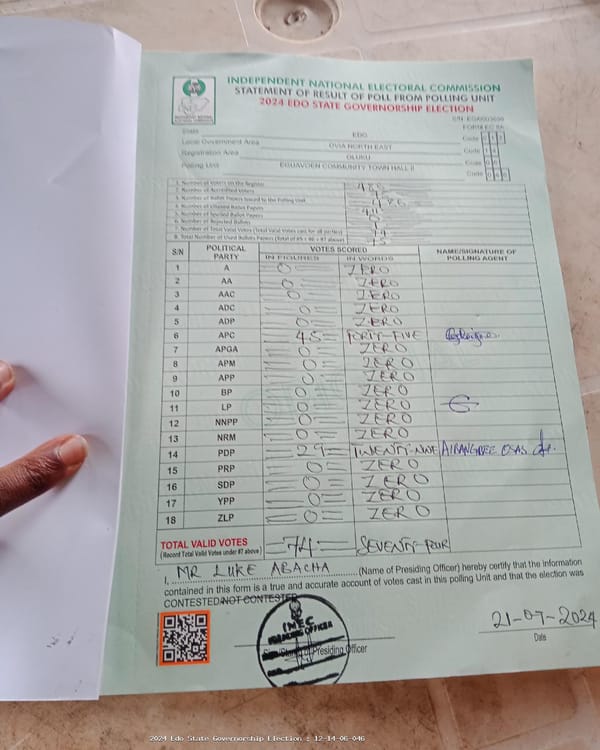 INDEPENDENT NATIONAL ELECTORAL COMMISSION
STATEMENT OF RESULT OF POLL FROM POLLING UNIT
2024 EDO STATE GOVERNORSHIP ELECTION
FORM EC 8A
State EDO Code
Local Government Area OVIA NORTH EAST Code
Registration Area OLUKU Code
Polling Unit EGUAVOEN COMMUNITY TOWN HALL II Code
1. Number of Voters on the Register 485
2. Number of Accredited Voters
3. Number of Ballot Papers Issued to the Polling Unit 485
4. Number of Unused Ballot Papers
5. Number of Spoiled Ballot Papers
6. Number of Rejected Ballots
7. Number of Total Valid Votes (Total Valid Votes cast for all parties) 74
8. Total Number of Used Ballot Papers (Total of #5 + #6 + #7 above) 75
S/N POLITICAL PARTY VOTES SCORED NAME/SIGNATURE OF POLLING AGENT
IN FIGURES IN WORDS
1 A 0 ZERO
2 AA 0 ZERO
3 AAC 0 ZERO
4 ADC 0 ZERO
5 ADP 0 ZERO
6 APC 45 FORTY FIVE
7 APGA 0 ZERO
8 APM 0 ZERO
9 APP 0 ZERO
10 BP 0 ZERO
11 LP 0 ZERO
12 NNPP 0 ZERO
13 NRM 0 ZERO
14 PDP 29 TWENTY-NINE OSAS
15 PRP 0 ZERO
16 SDP 0 ZERO
17 YPP 0 ZERO
18 ZLP 0 ZERO
TOTAL VALID VOTES =74= SEVENTY-FOUR
(Record Total Valid Votes under #7 above)
I, MR LUKE ABACHA (Name of Presiding Officer) hereby certify that the information
contained in this form is a true and accurate account of votes cast in this polling Unit and that the election was
CONTESTED/NOT CONTESTED
INEC
PRESIDING OFFICER
Presiding Officer
21-09-2024
Date
2024 Edo State Governorship Election : 12-14-06-046